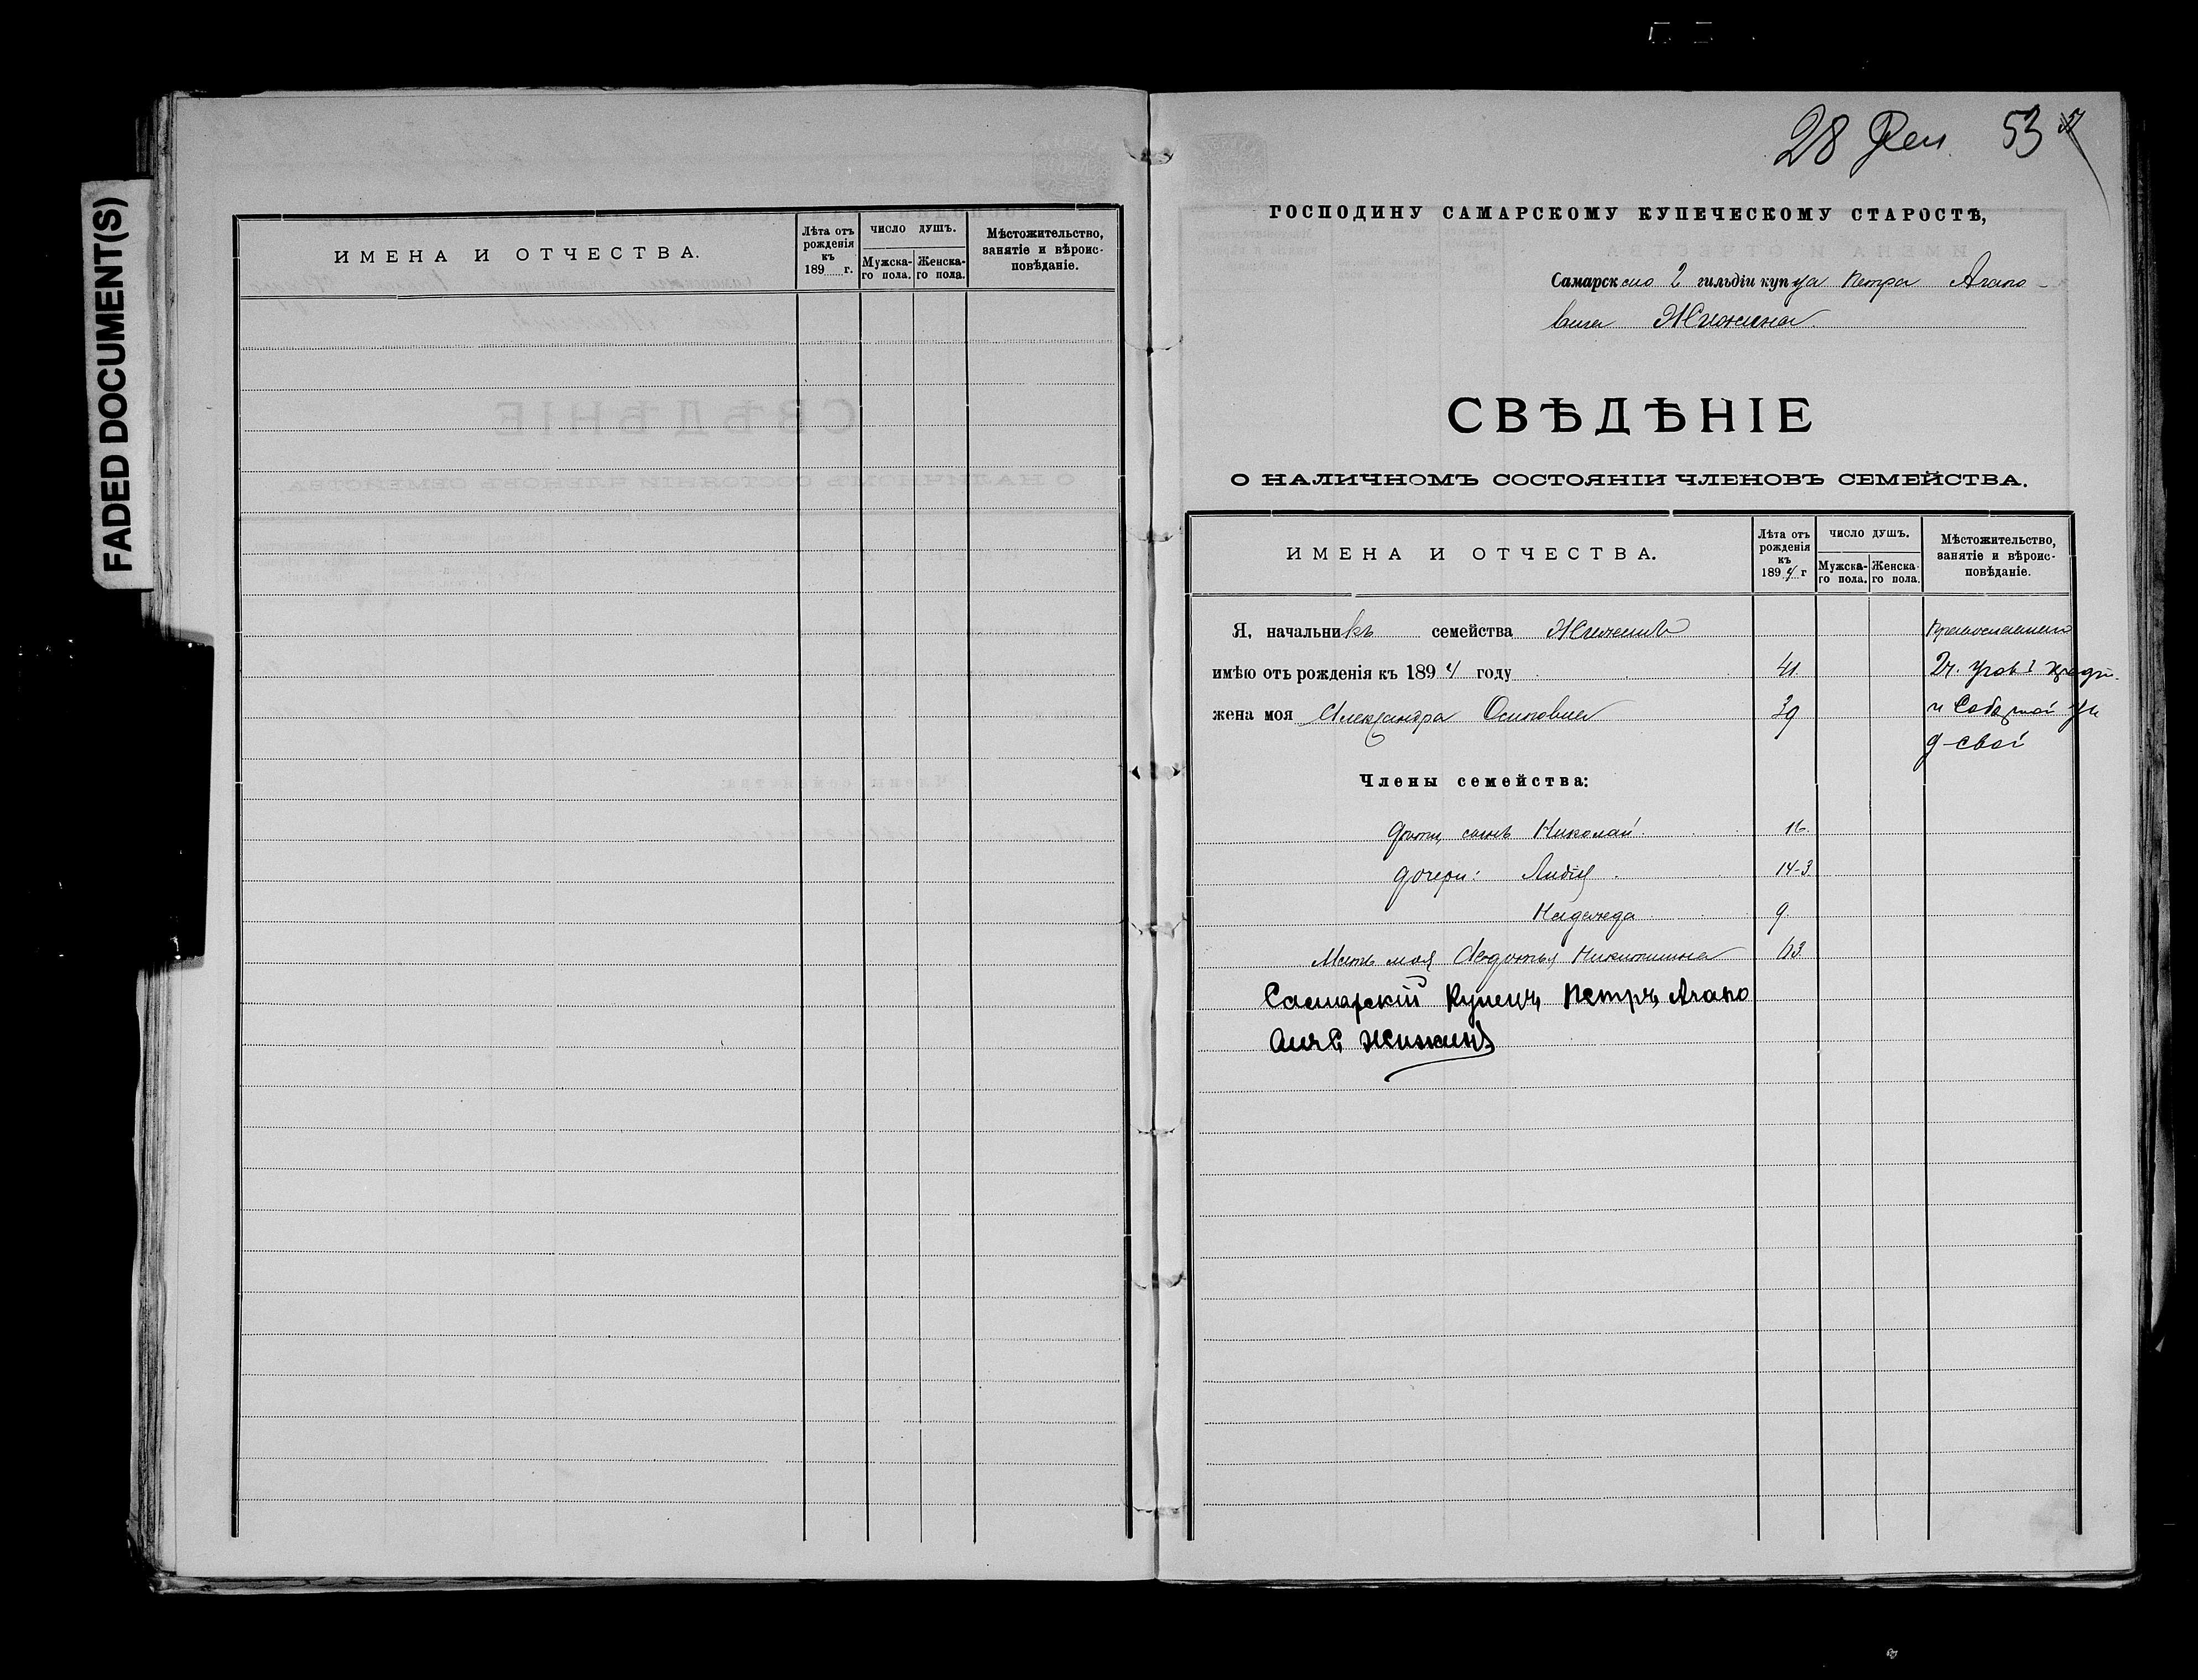 FADED DOCUMENT(S)
ИМЕНА И ОТЧЕСТВА.
Лѣта отъ рожденія къ 189 г.
ЧИСЛО ДУШЪ.
Мужска-го пола.
Женска-го пола.
Мѣстожительство, занятіе и вѣроис-повѣданіе.
28 Дек. 53
ГОСПОДИНУ САМАРСКОМУ КУПЕЧЕСКОМУ СТАРОСТѢ,
Самарскаго 2 гильдіи купца Петра Агапо-
вича Жижина
СВѢДѢНІЕ
О НАЛИЧНОМЪ СОСТОЯНІИ ЧЛЕНОВЪ СЕМЕЙСТВА.
ИМЕНА И ОТЧЕСТВА.
Лѣта отъ рожденія къ 1894 г
ЧИСЛО ДУШЪ.
Мужска-го пола.
Женска-го пола.
Мѣстожительство, занятіе и вѣроис-повѣданіе.
Я, начальникъ семейства Жижинъ
имѣю отъ рожденія къ 1894 году 41 2 ч.
жена моя Александра Осиповна 39 и Соборной ул
д свой
Члены семейства:
дѣти, сынъ Николай 16
дочери: Лидія 14-3
Надежда 9
Мать моя Авдотья Никитишна 63
Самарскій Купецъ Петръ Агапо
вичъ Жижинъ